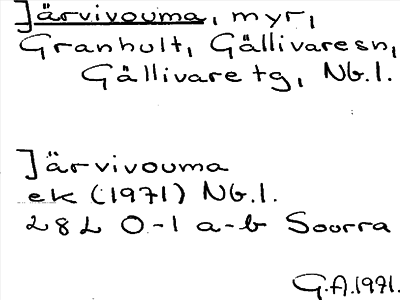 Järvivouma, myr,
Granhult, Gällivare sn,
Gällivare tg, Nb.l.
Järvivouma
ek (1971) Nb.l.
28L 0-1 a-b Soorra
G.A.1971.